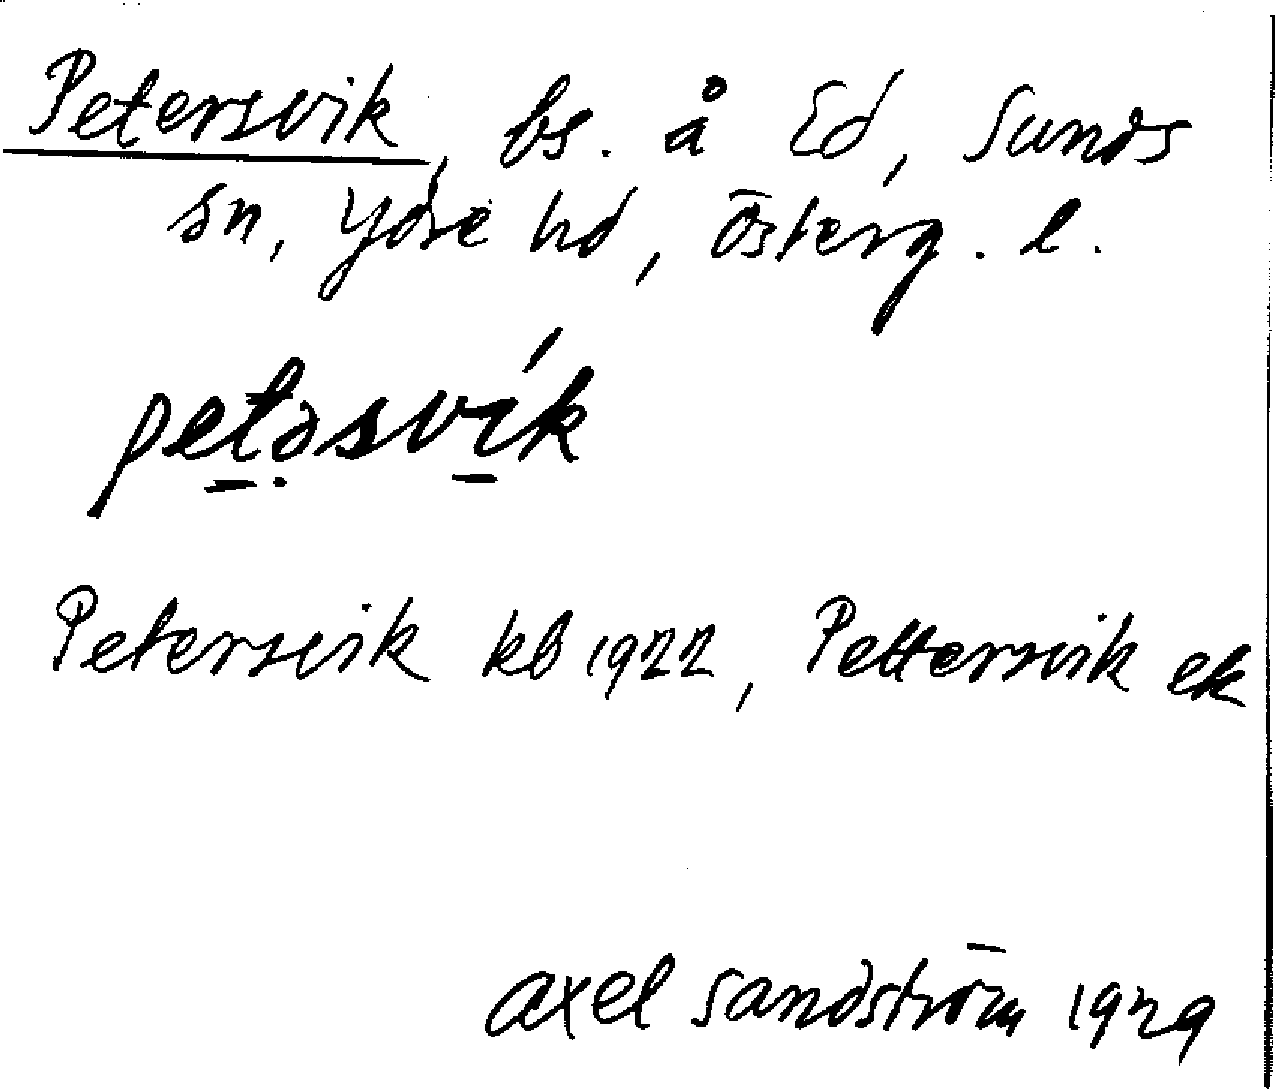 Petersvik, bs. å Ed, Sunds
sn, Ydre hd, Österg. l.
petəsvik
Petersvik kb 1922, Pettersvik ek
axel sandström 1929